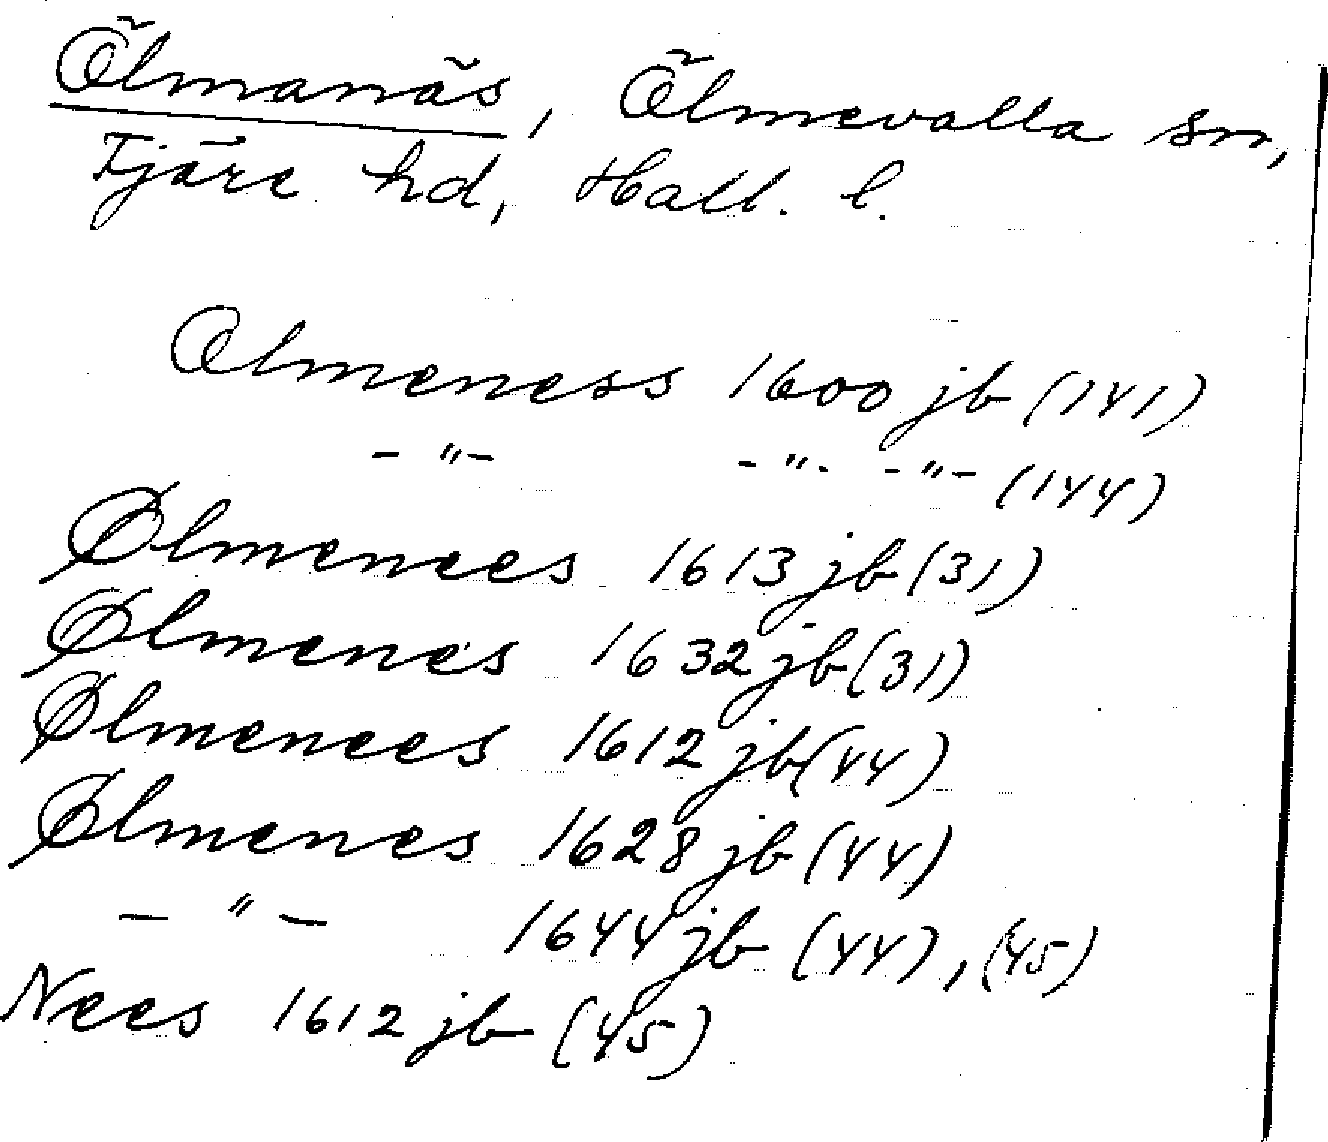 Ölmanäs, Ölmevalla sn,
Fjäre hd, Hall. l.
Olmeness 1600 jb (141)
- " - - " - - " - (144)
Ølmenees 1613 jb (31)
Ølmenes 1632 jb (31)
Ølmenees 1612 jb (44)
Ølmenes 1628 jb (44)
- " - 1644 jb (44), (45)
Nees 1612 jb (45)